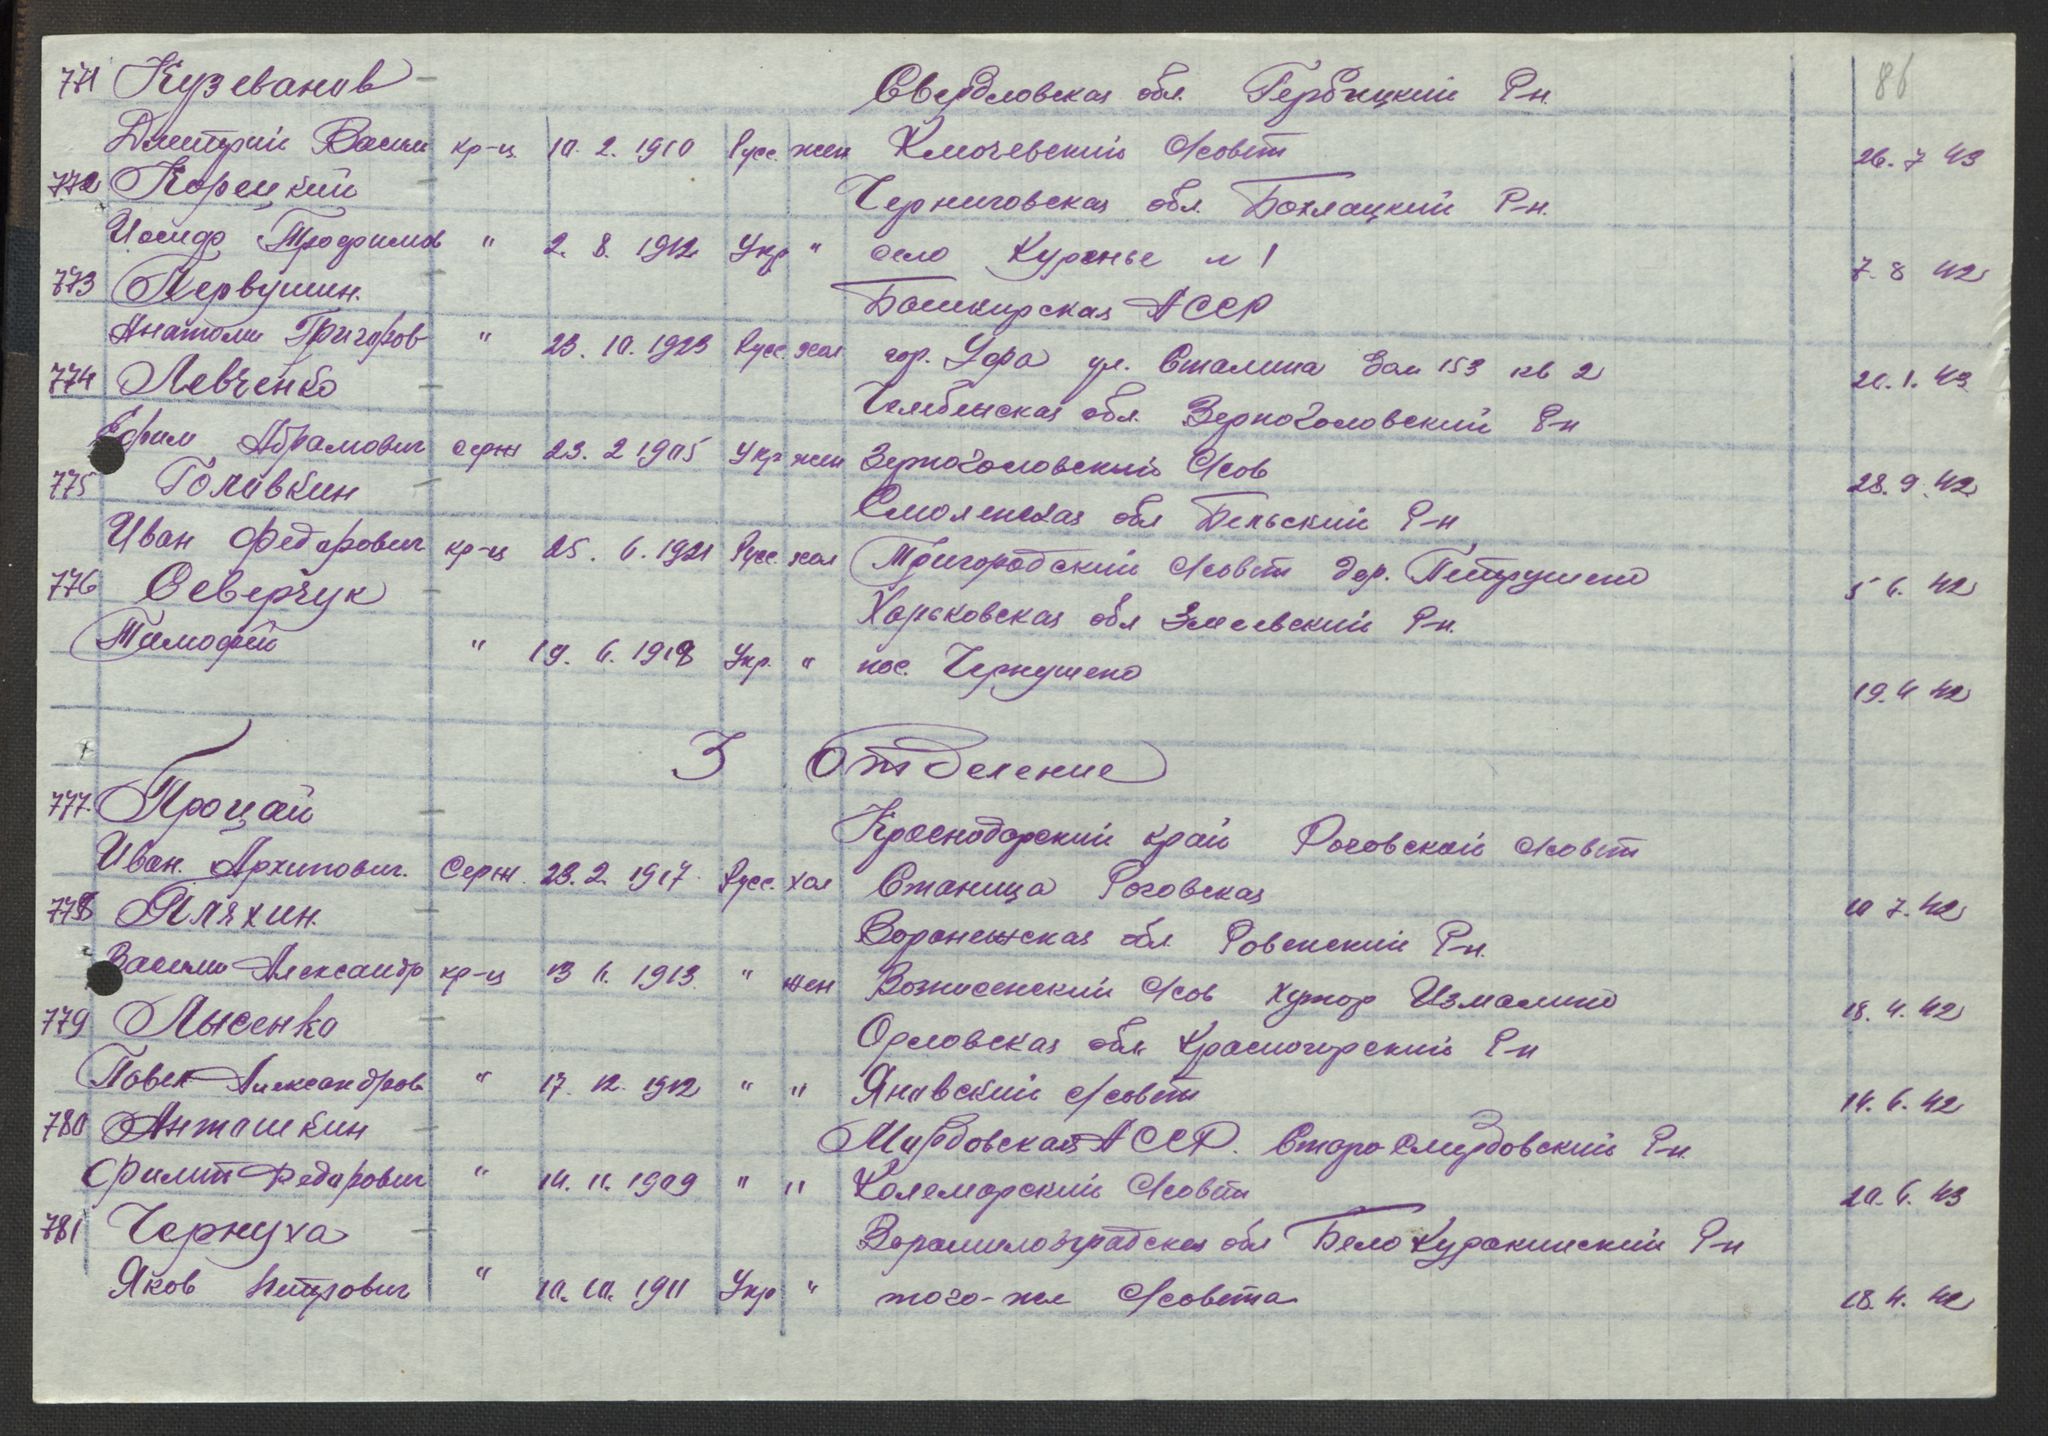 86
771 Кузеванов Свердловская обл. Гербицкий Р-н.
Дмитрий Васили кр-ц 10. 2. 1910 Русс. жен Ключевский С/совет 26. 7 43
772 Корецкий Черниговская обл. Бахмацкий Р-н.
Иосиф Трофимов " 2. 8. 1912 Укр " село Куренье №1 7. 8 42
773 Первушин. Башкирская АССР
Анатоли Григоров " 23. 10. 1923 Русс. хол гор. Уфа ул. Сталина дом 153 кв 2 20. 1. 43
774 Левченко Челябинская обл. Зерноголовский Р-н
Ефим Абрамович серж 23. 2 1905 Укр жен Зерноголовский С/сов 28. 9. 42
775 Головкин Смоленская обл Бельский Р-н
Иван Федорович кр-ц 25. 6. 1921 Русс. хол Пригородский С/совет дер. Петрушено 5 6. 42
776 Северчук Харьковская обл Змиевский Р-н.
Тимофей " 19. 6. 1918 Укр. " пос. Чернушено 19. 4 42
3 Отделение
777. Процай Краснодарский край Роговской С/совет
Иван. Архипович. Серж. 23. 2. 1917. Русс. хол Станица Роговская 10 7. 42
778 Пляхин. Воронежская обл Ровенский Р-н.
Васили Александр кр-ц 13 4. 1913. " жен Вознесенский С/сов хутор Измалино 18. 4. 42
779 Лысенко Орловская обл. Красногорский Р-н
Павел Александров " 17. 12. 1912 " " Яновский с/совет 14. 6. 42
780 Анташкин Мордовская АССР. Старо Синдовский Р-н.
Филип Федорович " 14. 11. 1909 " " Колемарский С/совет 20. 6. 43
781 Чернуха Ворошиловградская обл Бело Куракинский Р-н
Яков Петрович " 10. 10. 1911 Укр " того-же С/совета 18. 4. 42